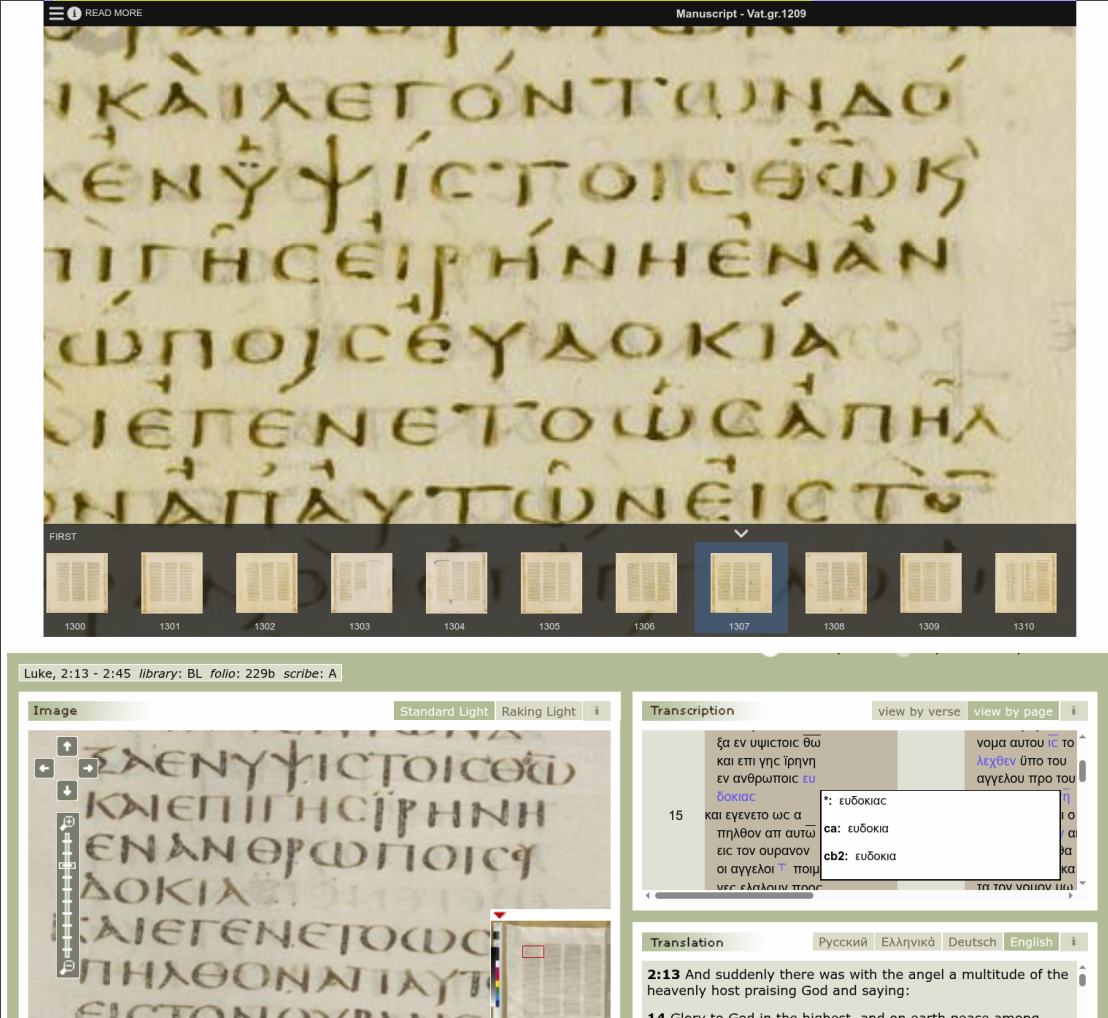 READ MORE
Manuscript - Vat.gr.1209
ΙΚΑΙΛΕΓΟΝΤΩΝΔΟ
ΕΝΫΨΙCΤΟΙCΘΩΚ
ΠΙΓΗCΕΙΡΗΝΗΕΝΑΝ
ΩΠΟΙCΕΥΔΟΚΙΑ
ΙΕΓΕΝΕΤΟΩCΑΠΗΛ
ΝΑΠΑΥΤΩΝΕΙCΤΟ
FIRST
1300 1301 1302 1303 1304 1305 1306 1307 1308 1309 1310
Luke, 2:13 - 2:45 library: BL folio: 229b scribe: A
Image
Standard Light Raking Light i
ΞΑΕΝΥΨΙCΤΟΙCΘΩ
ΚΑΙΕΠΙΓΗCΪΡΗΝΗ
ΕΝΑΝΘΡΩΠΟΙCΕΥ
ΔΟΚΙΑ
ΚΑΙΕΓΕΝΕΤΟΩC
ΠΗΛΘΟΝΑΠΑΥΤ
Transcription
view by verse view by page i
ξα εν υψιcτοιc θω
και επι γηc ϊρηνη
εν ανθρωποιc ευ
δοκιαc
15 και εγενετο ωc α
πηλθον απ αυτω
ειc τον ουρανον
οι αγγελοι ⸆ ποιμ
νεc ελαλουν προc
νομα αυτου ιc το
λεχθεν ϋπο του
αγγελου προ του
*: ευδοκιαc
ca: ευδοκια
cb2: ευδοκια
τα τον νομον μω
Translation
Русский Ελληνικά Deutsch English i
2:13 And suddenly there was with the angel a multitude of the
heavenly host praising God and saying:
14 Glory to God in the highest, and on earth peace among